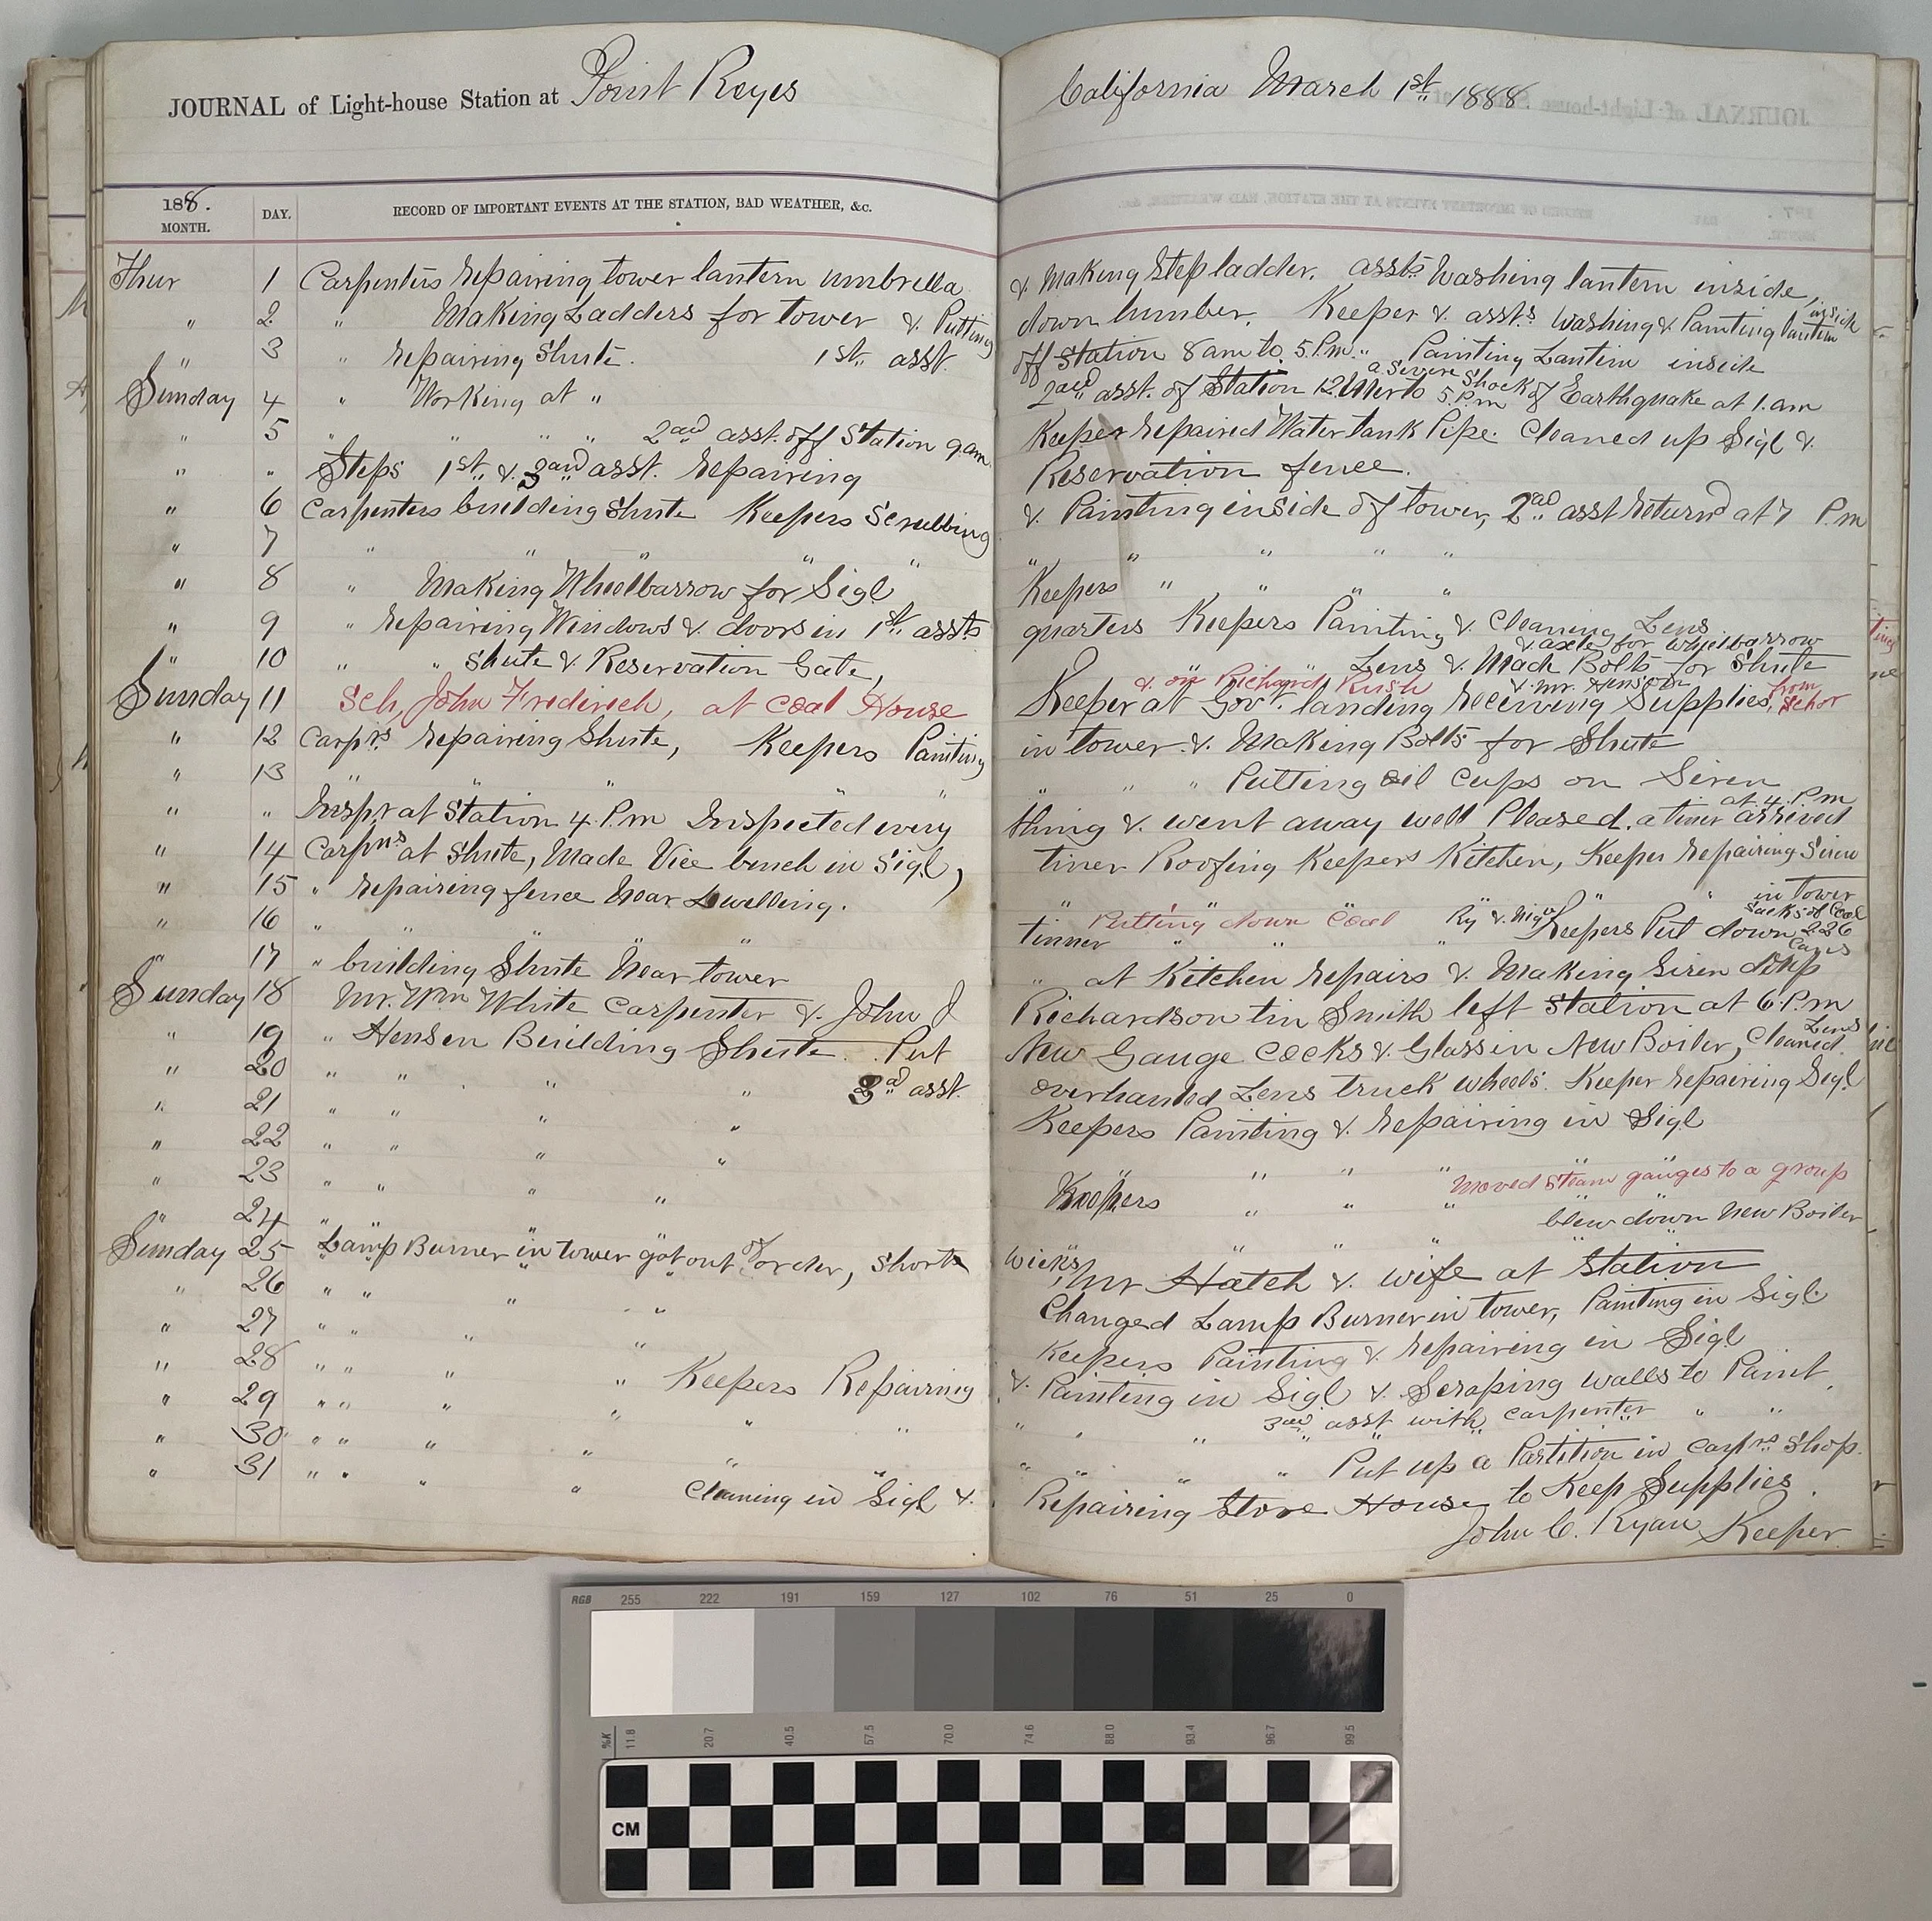 JOURNAL of Light-house Station at Point Reyes
California March 1st 1888
1888.
MONTH.
DAY.
RECORD OF IMPORTANT EVENTS AT THE STATION, BAD WEATHER, &c.
Thur 1 Carpenters repairing tower lantern umbrella & Making Step ladder. assts Washing lantern inside,
" 2 " Making Ladders for tower & Putting down lumber. Keeper & assts Washing & Painting lantern inside
" 3 " repairing Shute. 1st asst. off Station 8 am to 5 P.m. Painting Lantern inside
Sunday 4 " Working at " 2nd asst. of Station 12 Mer to 5 P.m a Severe Shock of Earthquake at 1. am
" 5 " " " " 2nd asst. off Station 9 am Keeper repaired Water tank Pipe. Cleaned up Sigl &
" " Steps 1st & 3rd asst. repairing Reservation fence.
" 6 Carpenters building Shute Keepers Scrubbing & Painting inside of tower, 2nd asst returnd at 7 P.m
" 7 " " " " " " " " " "
" 8 " Making Wheelbarrow for Sigl Keepers " " " "
" 9 " repairing Windows & doors in 1st assts quarters Keepers Painting & Cleaning Lens
" 10 " " Shute & Reservation Gate, Lens & Made Bolts for Shute & axle for wheelbarrow
Sunday 11 Sch, John Frederich, at coal House & on Richard Rush Keeper at Govt. landing receiving Supplies, from Schor & Mr. Henson
" 12 Carpr's repairing Shute, Keepers Painting in tower & Making Bolts for Shute
" 13 " " " " " " " " Putting oil cups on Siren
" " Inspr at Station 4 P.m Inspected every thing & went away well Pleased. a tiner arrived at 4 P.m
" 14 Carpnrs at Shute, Made Vice bench in Sigl, tiner Roofing Keepers Kitchen, Keeper repairing Siren
" 15 " repairing fence Near Dwelling. " " " " " in tower
" 16 " " " " tinner Putting down coal " " " Keepers Put down 226 Sacks of Coal
" 17 " building Shute Near tower " at Kitchen repairs & Making Siren drip Cans
Sunday 18 Mr. Wm White Carpenter & John J Richardson tin Smith left Station at 6 P.m
" 19 " Hensen Building Shute. Put New Gauge cocks & Glass in New Boiler, Cleaned Lens
" 20 " " " " 3rd asst. overhauled Lens truck wheels. Keeper repairing Sigl
" 21 " " " " Keepers Painting & repairing in Sigl
" 22 " " " " " " " " "
" 23 " " " " Keepers " " " Moved Steam gauges to a group
" 24 " " " " " " " blew down New Boiler
Sunday 25 Lamp Burner in tower got out of order, Shorts wicks, Mr Hatch & wife at Station
" 26 " " " " Changed Lamp Burner in tower, Painting in Sigl
" 27 " " " " Keepers Painting & repairing in Sigl
" 28 " " " " Keepers Repairing & Painting in Sigl & Scraping walls to Paint,
" 29 " " " " " " " " " 3rd asst with carpenter " "
" 30 " " " " " " " " " " Put up a Partition in carprs Shop.
" 31 " " " " Cleaning in Sigl & Repairing Store House to Keep Supplies.
John C. Ryan Keeper
RGB 255 222 191 159 127 102 76 51 25 0
%K 11.8 20.7 40.5 57.5 70.0 74.6 88.0 93.4 96.7 99.5
CM